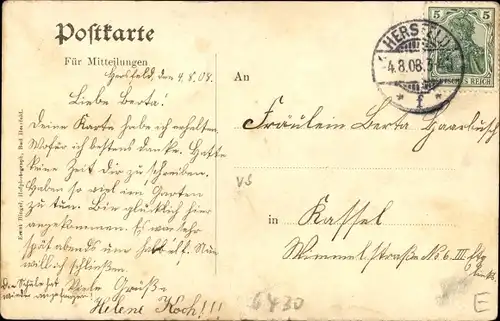 Postkarte
Für Mitteilungen
Hersfeld, den 4.8.08.
Liebe Berta!
Deine Karte habe ich erhalten.
Wofür ich bestens danke. Hatte
keine Zeit dir zu schreiben.
Haben so viel im Garten
zu tun. Bin glücklich hier
angekommen. Es war sehr
spät abends um halb elf. Nun
will ich schließen.
Die Schule hat
wieder angefangen.
Viele Grüße
Helene Koch!!!
An
Fräulein Berta
in Kassel
No 6. III
HERSFELD
4.8.08.
* f *
5 5
DEUTSCHES REICH
Ernst Hofphotograph, Bad Hersfeld.
VS
6430
E